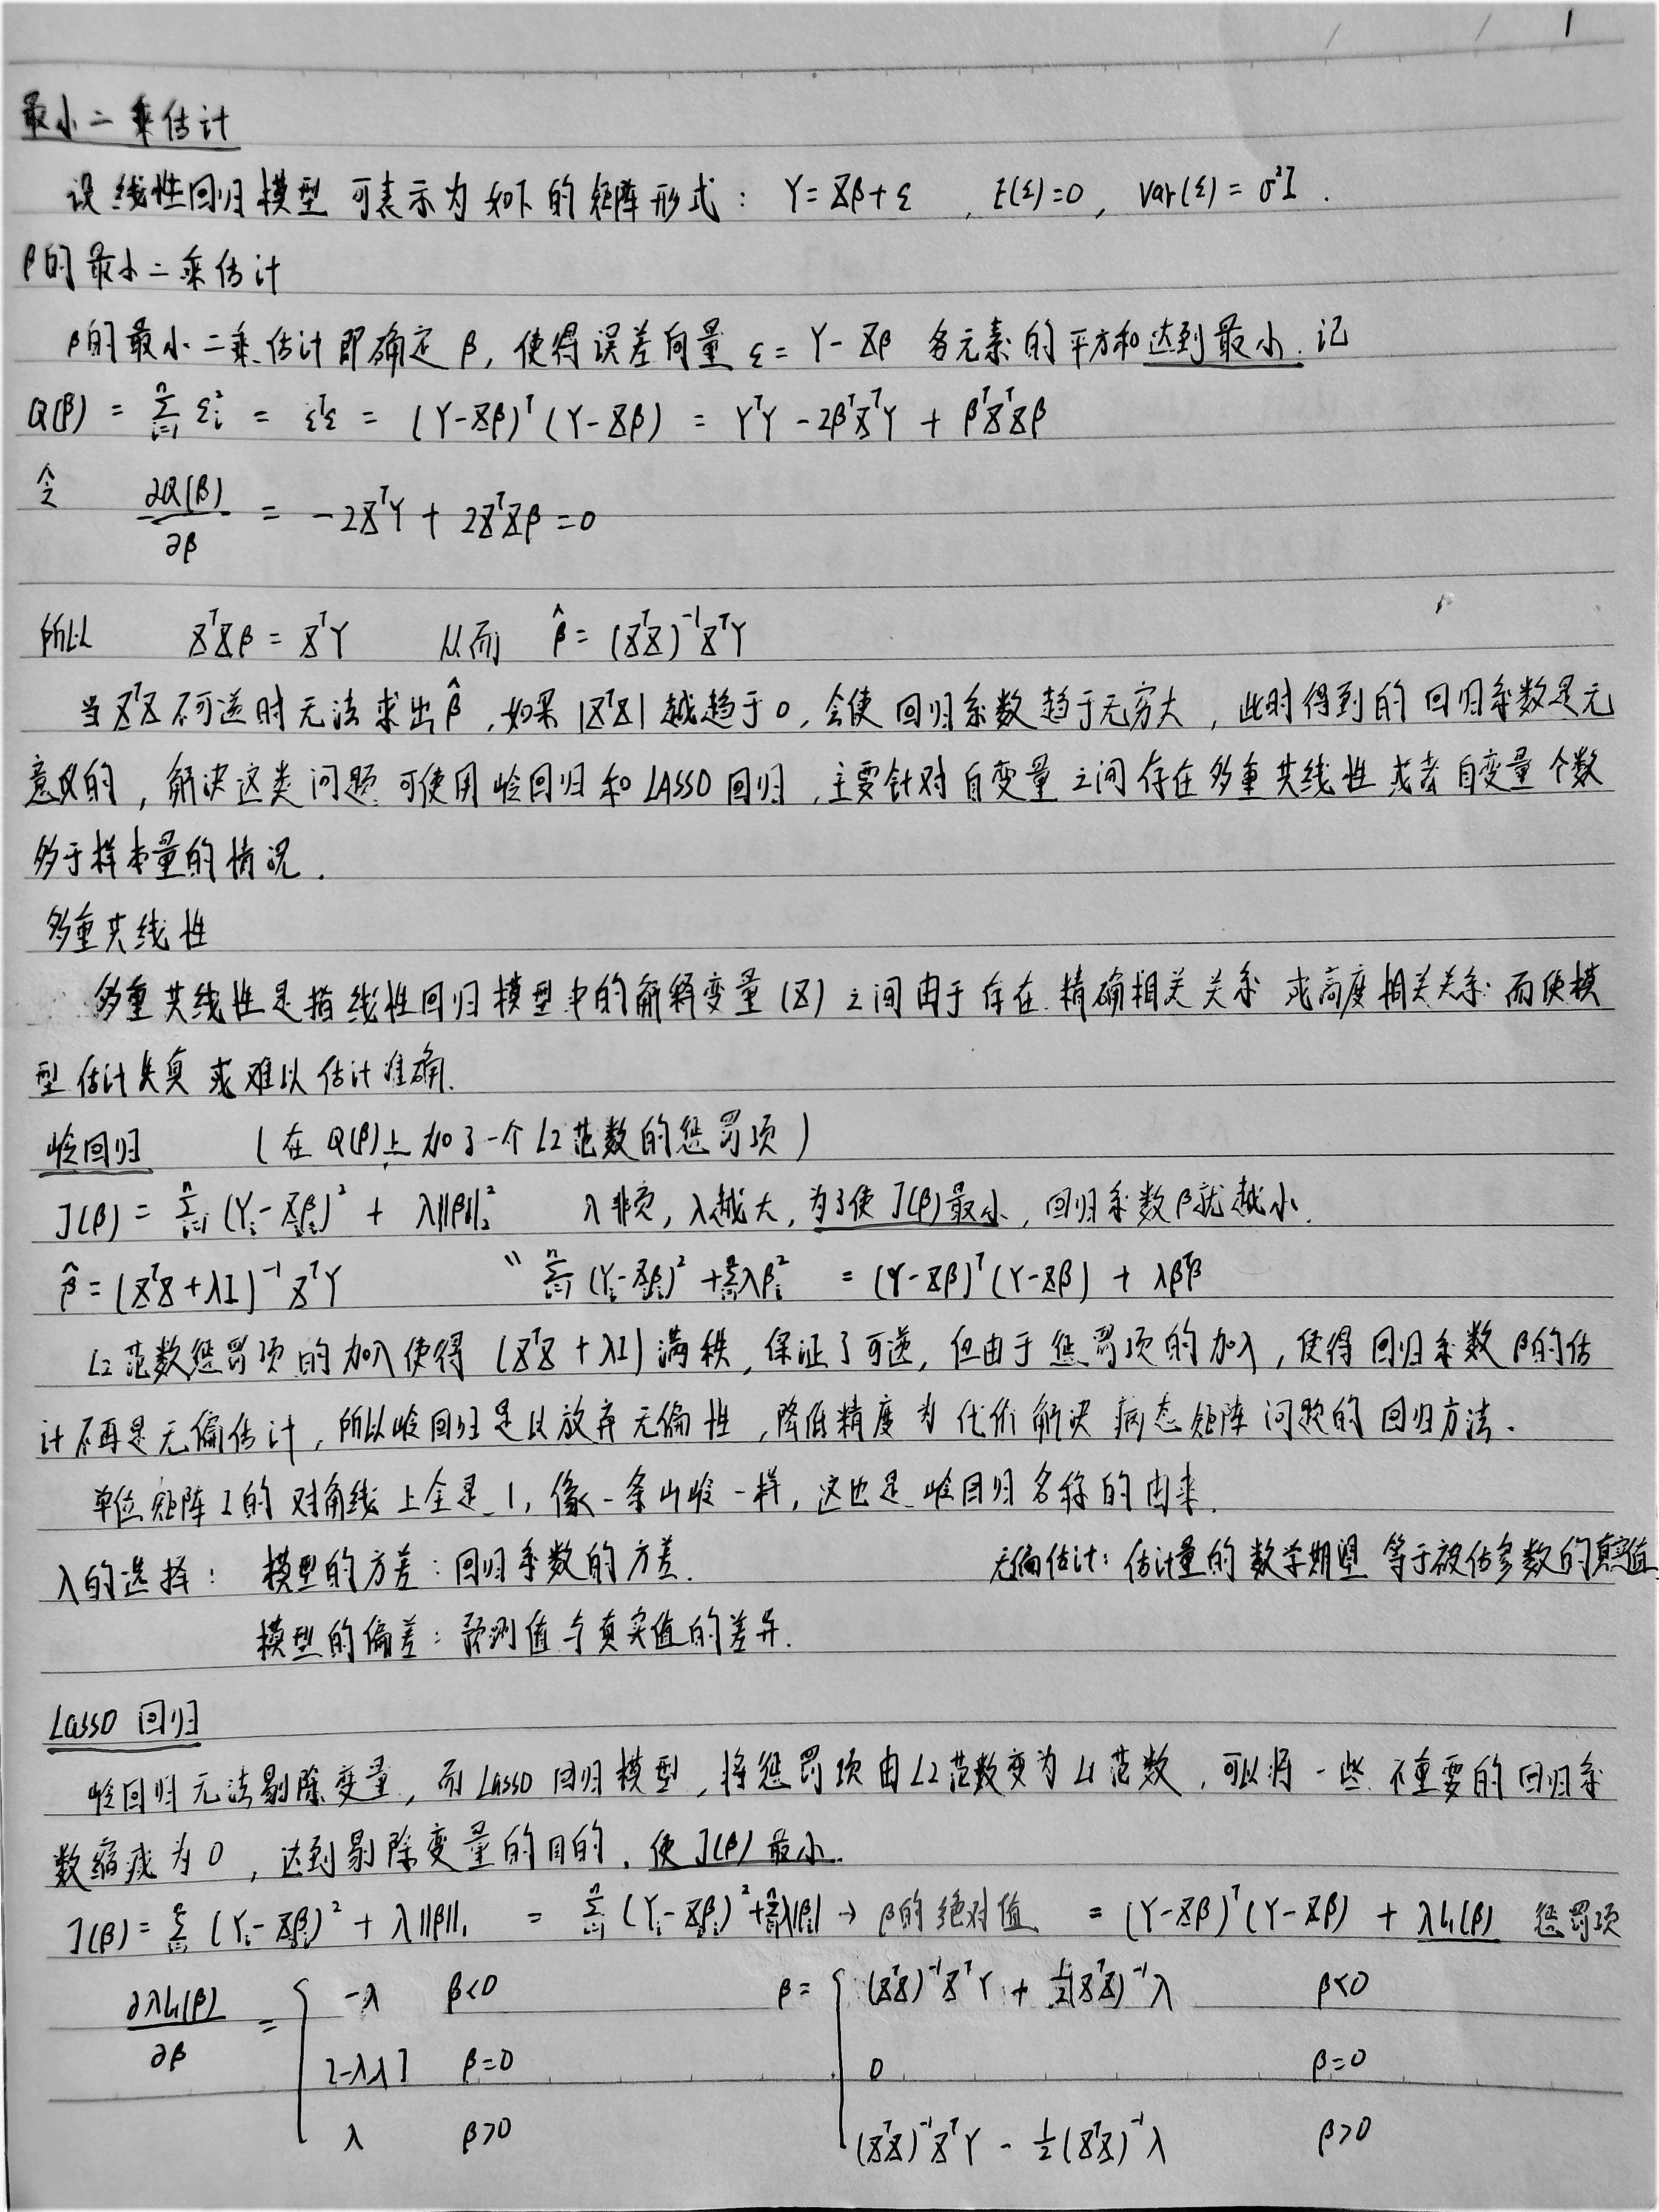 1
最小二乘估计
设线性回归模型可表示为如下的矩阵形式: Y=Xβ+ε , E(ε)=0, Var(ε)=σ²I.
β的最小二乘估计
β的最小二乘估计即确定β,使得误差向量 ε=Y-Xβ 各元素的平方和达到最小.记
Q(β) = Σ_{i=1}^{n} ε_i² = ε^Tε = (Y-Xβ)^T(Y-Xβ) = Y^TY - 2β^TX^TY + β^TX^TXβ
令 ∂Q(β)/∂β = -2X^TY + 2X^TXβ = 0
所以 X^TXβ = X^TY 从而 β̂ = (X^TX)^{-1}X^TY
当X^TX不可逆时无法求出β̂,如果|X^TX|越趋于0,会使回归系数趋于无穷大,此时得到的回归系数是无
意义的,解决这类问题可使用岭回归和LASSO回归,主要针对自变量之间存在多重共线性或者自变量个数
多于样本量的情况.
多重共线性
多重共线性是指线性回归模型中的解释变量(X)之间由于存在精确相关关系或高度相关关系而使模
型估计失真或难以估计准确.
岭回归 (在Q(β)上加了一个L2范数的惩罚项)
J(β) = Σ_{i=1}^{n} (Y_i-X_iβ_i)² + λ||β||₂² λ非负,λ越大,为了使J(β)最小,回归系数β就越小.
β̂ = (X^TX+λI)^{-1}X^TY " Σ_{i=1}^{n} (Y_i-X_iβ_i)² + Σ_{i=1}^{n} λβ_i² = (Y-Xβ)^T(Y-Xβ) + λβ^Tβ
L2范数惩罚项的加入使得(X^TX+λI)满秩,保证了可逆,但由于惩罚项的加入,使得回归系数β的估
计不再是无偏估计,所以岭回归是以放弃无偏性,降低精度为代价解决病态矩阵问题的回归方法.
单位矩阵I的对角线上全是1,像一条山岭一样,这也是岭回归名称的由来.
λ的选择: 模型的方差:回归系数的方差. 无偏估计:估计量的数学期望等于被估参数的真实值
模型的偏差:预测值与真实值的差异.
Lasso 回归
岭回归无法剔除变量,而Lasso回归模型,将惩罚项由L2范数变为L1范数,可以将一些不重要的回归系
数缩减为0,达到剔除变量的目的.使J(β)最小.
J(β) = Σ_{i=1}^{n} (Y_i-X_iβ_i)² + λ||β||₁ = Σ_{i=1}^{n} (Y_i-X_iβ_i)² + Σ_{i=1}^{n} λ|β_i| → β的绝对值 = (Y-Xβ)^T(Y-Xβ) + λL₁(β) 惩罚项
∂λL₁(β)/∂β = { -λ β<0 β = { (X^TX)^{-1}X^TY + ½(X^TX)^{-1}λ β<0
[-λ λ] β=0 0 β=0
λ β>0 (X^TX)^{-1}X^TY - ½(X^TX)^{-1}λ β>0